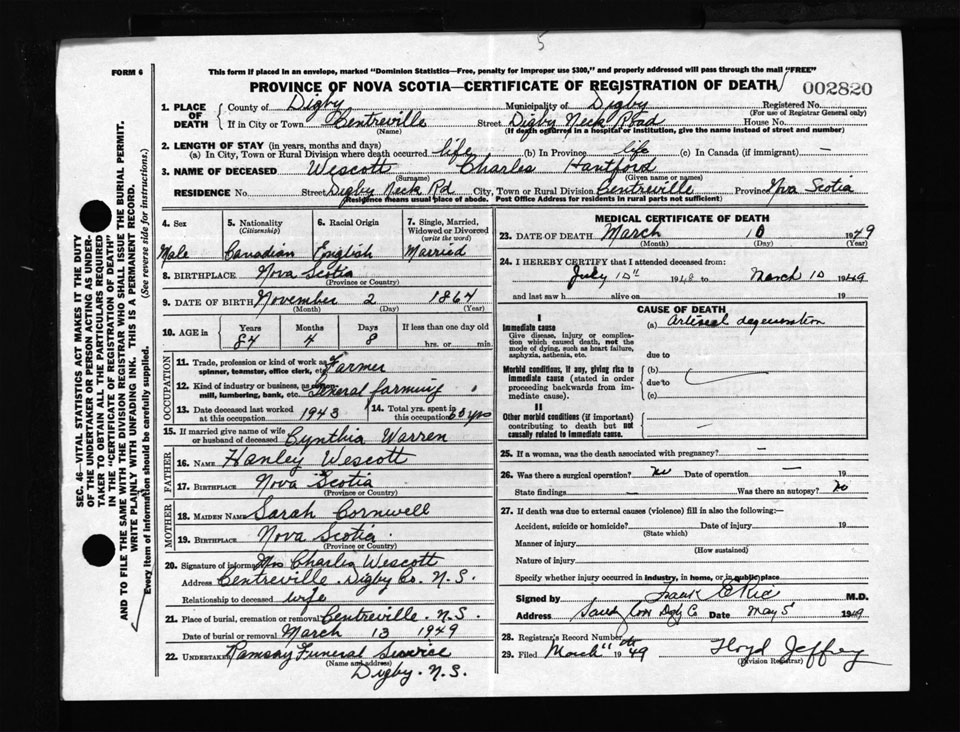 5
FORM 6
This form if placed in an envelope, marked "Dominion Statistics—Free, penalty for improper use $300," and properly addressed will pass through the mail "FREE"
PROVINCE OF NOVA SCOTIA—CERTIFICATE OF REGISTRATION OF DEATH 002820
1. PLACE OF DEATH
County of Digby Municipality of Digby Registered No.
(For use of Registrar General only)
If in City or Town Centreville Street Digby Neck Road House No.
(Name) (If death occurred in a hospital or institution, give the name instead of street and number)
2. LENGTH OF STAY (in years, months and days)
(a) In City, Town or Rural Division where death occurred life (b) In Province life (c) In Canada (if immigrant) —
3. NAME OF DECEASED Wescott Charles Hantford
(Surname) (Given name or names)
RESIDENCE No. Street Digby Neck Rd City, Town or Rural Division Centreville Province Nova Scotia
(Residence means usual place of abode. Post Office Address for residents in rural parts not sufficient)
4. Sex
Male
5. Nationality
(Citizenship)
Canadian
6. Racial Origin
English
7. Single, Married, Widowed or Divorced
(write the word)
Married
8. BIRTHPLACE Nova Scotia
(Province or Country)
9. DATE OF BIRTH November 2 1864
(Month) (Day) (Year)
10. AGE in
Years Months Days If less than one day old
84 4 8 hrs. or min.
OCCUPATION
11. Trade, profession or kind of work as spinner, teamster, office clerk, etc. Farmer
12. Kind of industry or business, as mill, lumbering, bank, etc. General farming
13. Date deceased last worked at this occupation 1943
14. Total yrs. spent in this occupation 60 yrs
15. If married give name of wife or husband of deceased Cynthia Warren
FATHER
16. NAME Hanley Wescott
17. BIRTHPLACE Nova Scotia
(Province or Country)
MOTHER
18. MAIDEN NAME Sarah Cornwell
19. BIRTHPLACE Nova Scotia
(Province or Country)
20. Signature of informant Mrs Charlis Wescott
Address Centreville Digby Co. N.S.
Relationship to deceased wife
21. Place of burial, cremation or removal Centreville. N.S.
Date of burial or removal March 13 1949
22. UNDERTAKER Ramsay Funeral Service
(Name and address)
Digby. N.S.
MEDICAL CERTIFICATE OF DEATH
23. DATE OF DEATH March 10 1949
(Month) (Day) (Year)
24. I HEREBY CERTIFY that I attended deceased from:
July 10th 1948 to March 10 1949
and last saw h alive on 19
CAUSE OF DEATH
I
Immediate cause
Give disease, injury or complication which caused death, not the mode of dying, such as heart failure, asphyxia, asthenia, etc.
(a) Arterial degeneration
due to
Morbid conditions, if any, giving rise to immediate cause (stated in order proceeding backwards from immediate cause).
(b)
due to
(c)
II
Other morbid conditions (if important) contributing to death but not causally related to immediate cause.
—
25. If a woman, was the death associated with pregnancy? —
26. Was there a surgical operation? no Date of operation — 19
State findings — Was there an autopsy? no
27. If death was due to external causes (violence) fill in also the following:—
Accident, suicide or homicide? Date of injury 19
(State which)
Manner of injury
(How sustained)
Nature of injury
Specify whether injury occurred in industry, in home, or in public place
Signed by Frank E Rice M.D.
Address Date May 5 1949
28. Registrar's Record Number
29. Filed March 11th 1949 Floyd Jeffrey
(Division Registrar)
SEC. 46—VITAL STATISTICS ACT MAKES IT THE DUTY
OF THE UNDERTAKER OR PERSON ACTING AS UNDER-
TAKER TO OBTAIN ALL THE PARTICULARS REQUIRED
IN THE "CERTIFICATE OF REGISTRATION OF DEATH"
AND TO FILE THE SAME WITH THE DIVISION REGISTRAR WHO SHALL ISSUE THE BURIAL PERMIT.
WRITE PLAINLY WITH UNFADING INK. THIS IS A PERMANENT RECORD.
Every item of information should be carefully supplied. (See reverse side for instructions.)